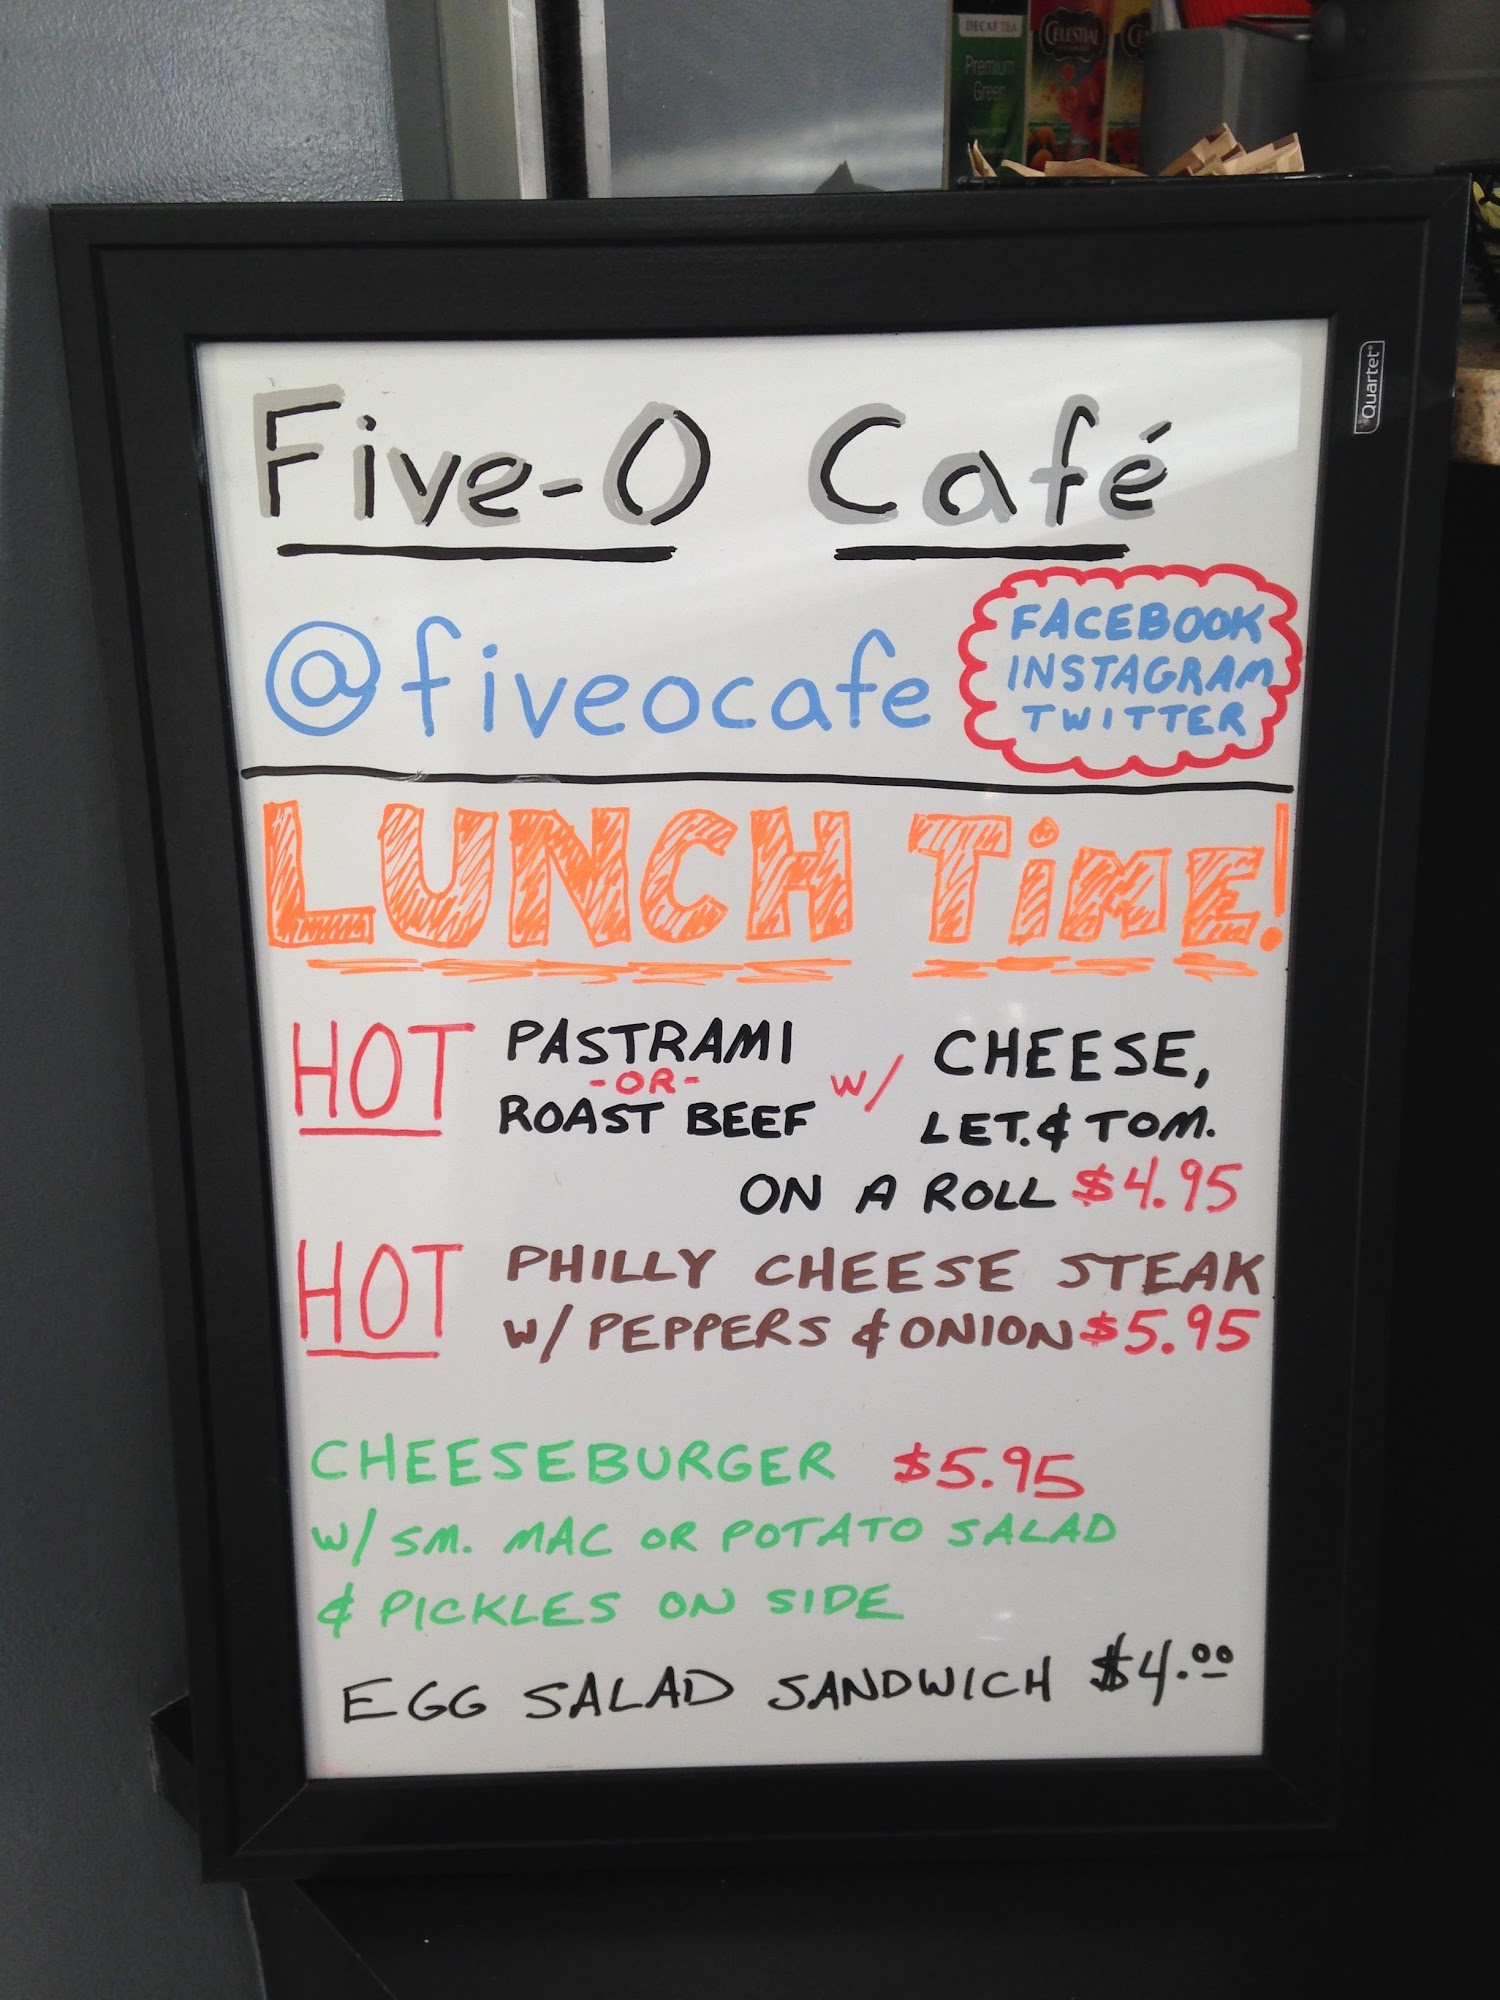 DECAF TEA
Premium
Green
CELESTIAL
Quartet
Five-O Café
@fiveocafe
FACEBOOK
INSTAGRAM
TWITTER
LUNCH TiME!
HOT PASTRAMI
-OR-
ROAST BEEF
w/ CHEESE,
LET. & TOM.
ON A ROLL $4.95
HOT PHILLY CHEESE STEAK
w/ PEPPERS & ONION $5.95
CHEESEBURGER $5.95
w/ SM. MAC OR POTATO SALAD
& PICKLES ON SIDE
EGG SALAD SANDWICH $4.00